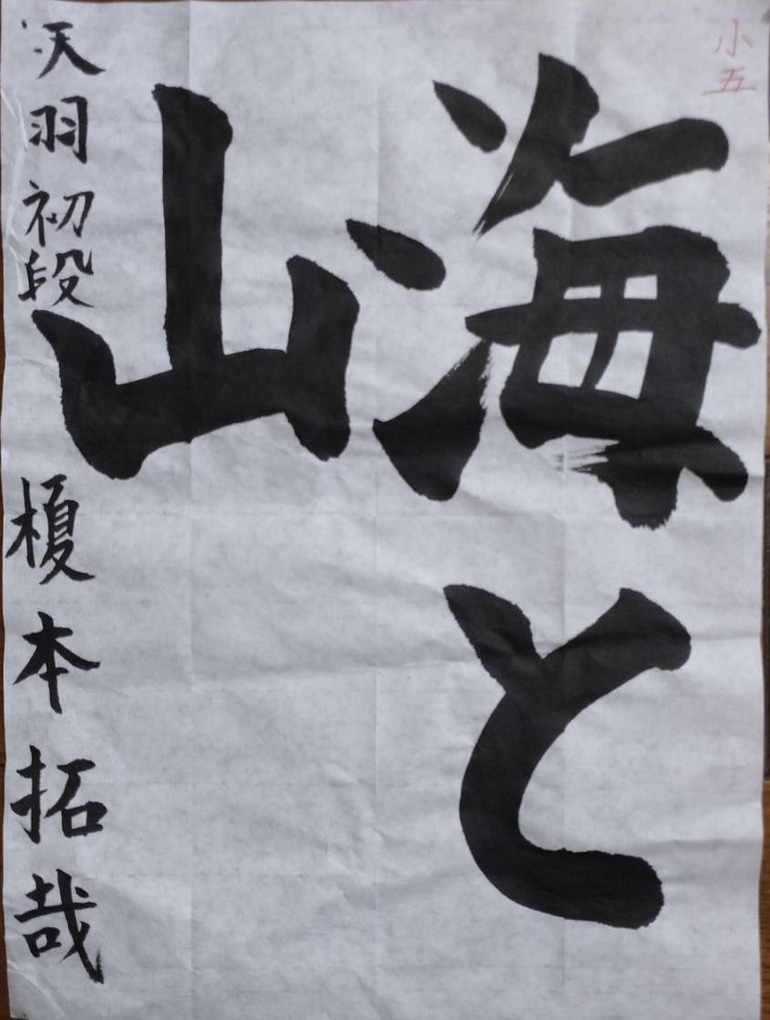 小五
海と
山
天羽初段
榎本拓哉